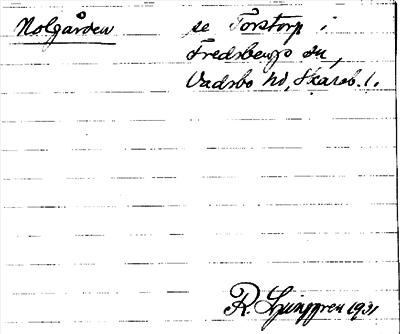 Nolgården se Torstorp i
Fredsbergs sn,
Vadsbo hd, Skarab. l.
R. Ljunggren 1931